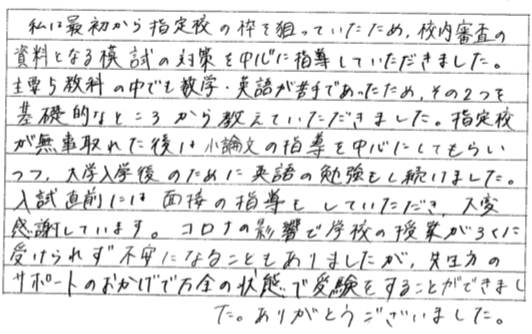 私は最初から指定校の枠を狙っていたため、校内審査の
資料となる模試の対策を中心に指導していただきました。
主要5教科の中でも数学・英語が苦手であったため、その2つを
基礎的なところから教えていただきました。指定校
が無事取れた後は小論文の指導を中心にしてもらい
つつ、大学入学後のために英語の勉強もし続けました。
入試直前には面接の指導もしていただき、大変
感謝しています。コロナの影響で学校の授業がろくに
受けられず不安になることもありましたが、先生方の
サポートのおかげで万全の状態で受験をすることができまし
た。ありがとうございました。